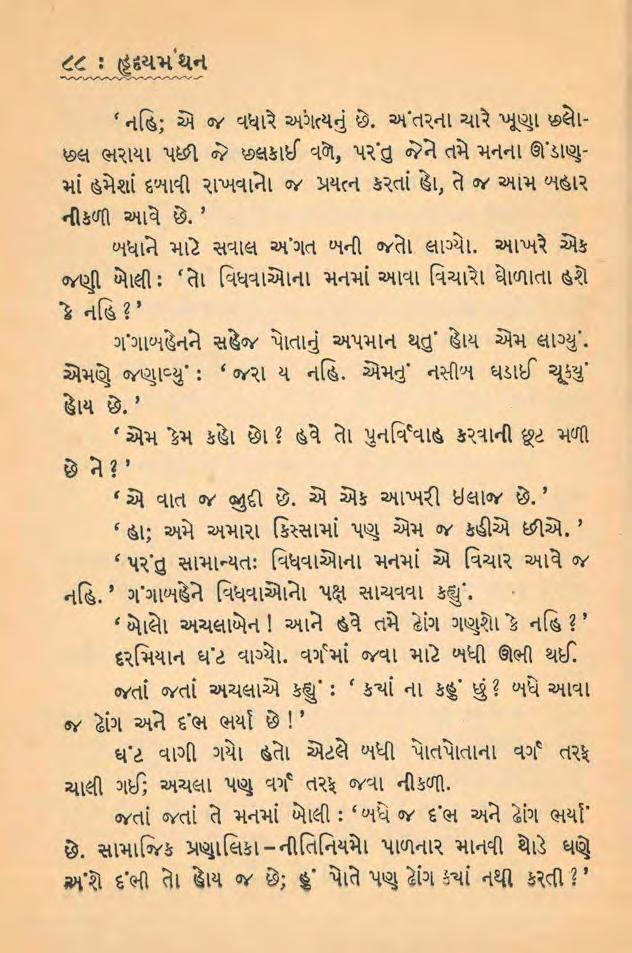 ૮૮ : હૃદયમંથન
‘નહિ; એ જ વધારે અગત્યનું છે. અંતરના ચારે ખૂણા છલો-
છલ ભરાયા પછી જે છલકાઈ વળે, પરંતુ જેને તમે મનના ઊંડાણ-
માં હમેશાં દબાવી રાખવાનો જ પ્રયત્ન કરતાં હો, તે જ આમ બહાર
નીકળી આવે છે.’
બધાને માટે સવાલ અંગત બની જતો લાગ્યો. આખરે એક
જણી બોલી: ‘તો વિધવાઓના મનમાં આવા વિચારો ઘોળાતા હશે
કે નહિ?’
ગંગાબહેનને સહેજ પોતાનું અપમાન થતું હોય એમ લાગ્યું.
એમણે જણાવ્યું: ‘જરા ય નહિ. એમનું નસીબ ઘડાઈ ચૂક્યું
હોય છે.’
‘એમ કેમ કહો છો? હવે તો પુનર્વિવાહ કરવાની છૂટ મળી
છે ને?’
‘એ વાત જ જુદી છે. એ એક આખરી ઇલાજ છે.’
‘હા; અમે અમારા કિસ્સામાં પણ એમ જ કહીએ છીએ.’
‘પરંતુ સામાન્યતઃ વિધવાઓના મનમાં એ વિચાર આવે જ
નહિ.’ ગંગાબહેને વિધવાઓનો પક્ષ સાચવવા કહ્યું.
‘બોલો અચલાબેન! આને હવે તમે ઢોંગ ગણશો કે નહિ?’
દરમિયાન ઘંટ વાગ્યો. વર્ગમાં જવા માટે બધી ઊભી થઈ.
જતાં જતાં અચલાએ કહ્યું: ‘ક્યાં ના કહું છું? બધે આવા
જ ઢોંગ અને દંભ ભર્યા છે!’
ઘંટ વાગી ગયો હતો એટલે બધી પોતપોતાના વર્ગ તરફ
ચાલી ગઈ; અચલા પણ વર્ગ તરફ જવા નીકળી.
જતાં જતાં તે મનમાં બોલી: ‘બધે જ દંભ અને ઢોંગ ભર્યાં
છે. સામાજિક પ્રણાલિકા–નીતિનિયમો પાળનાર માનવી થોડે ઘણે
અંશે દંભી તો હોય જ છે; હું પોતે પણ ઢોંગ ક્યાં નથી કરતી?’